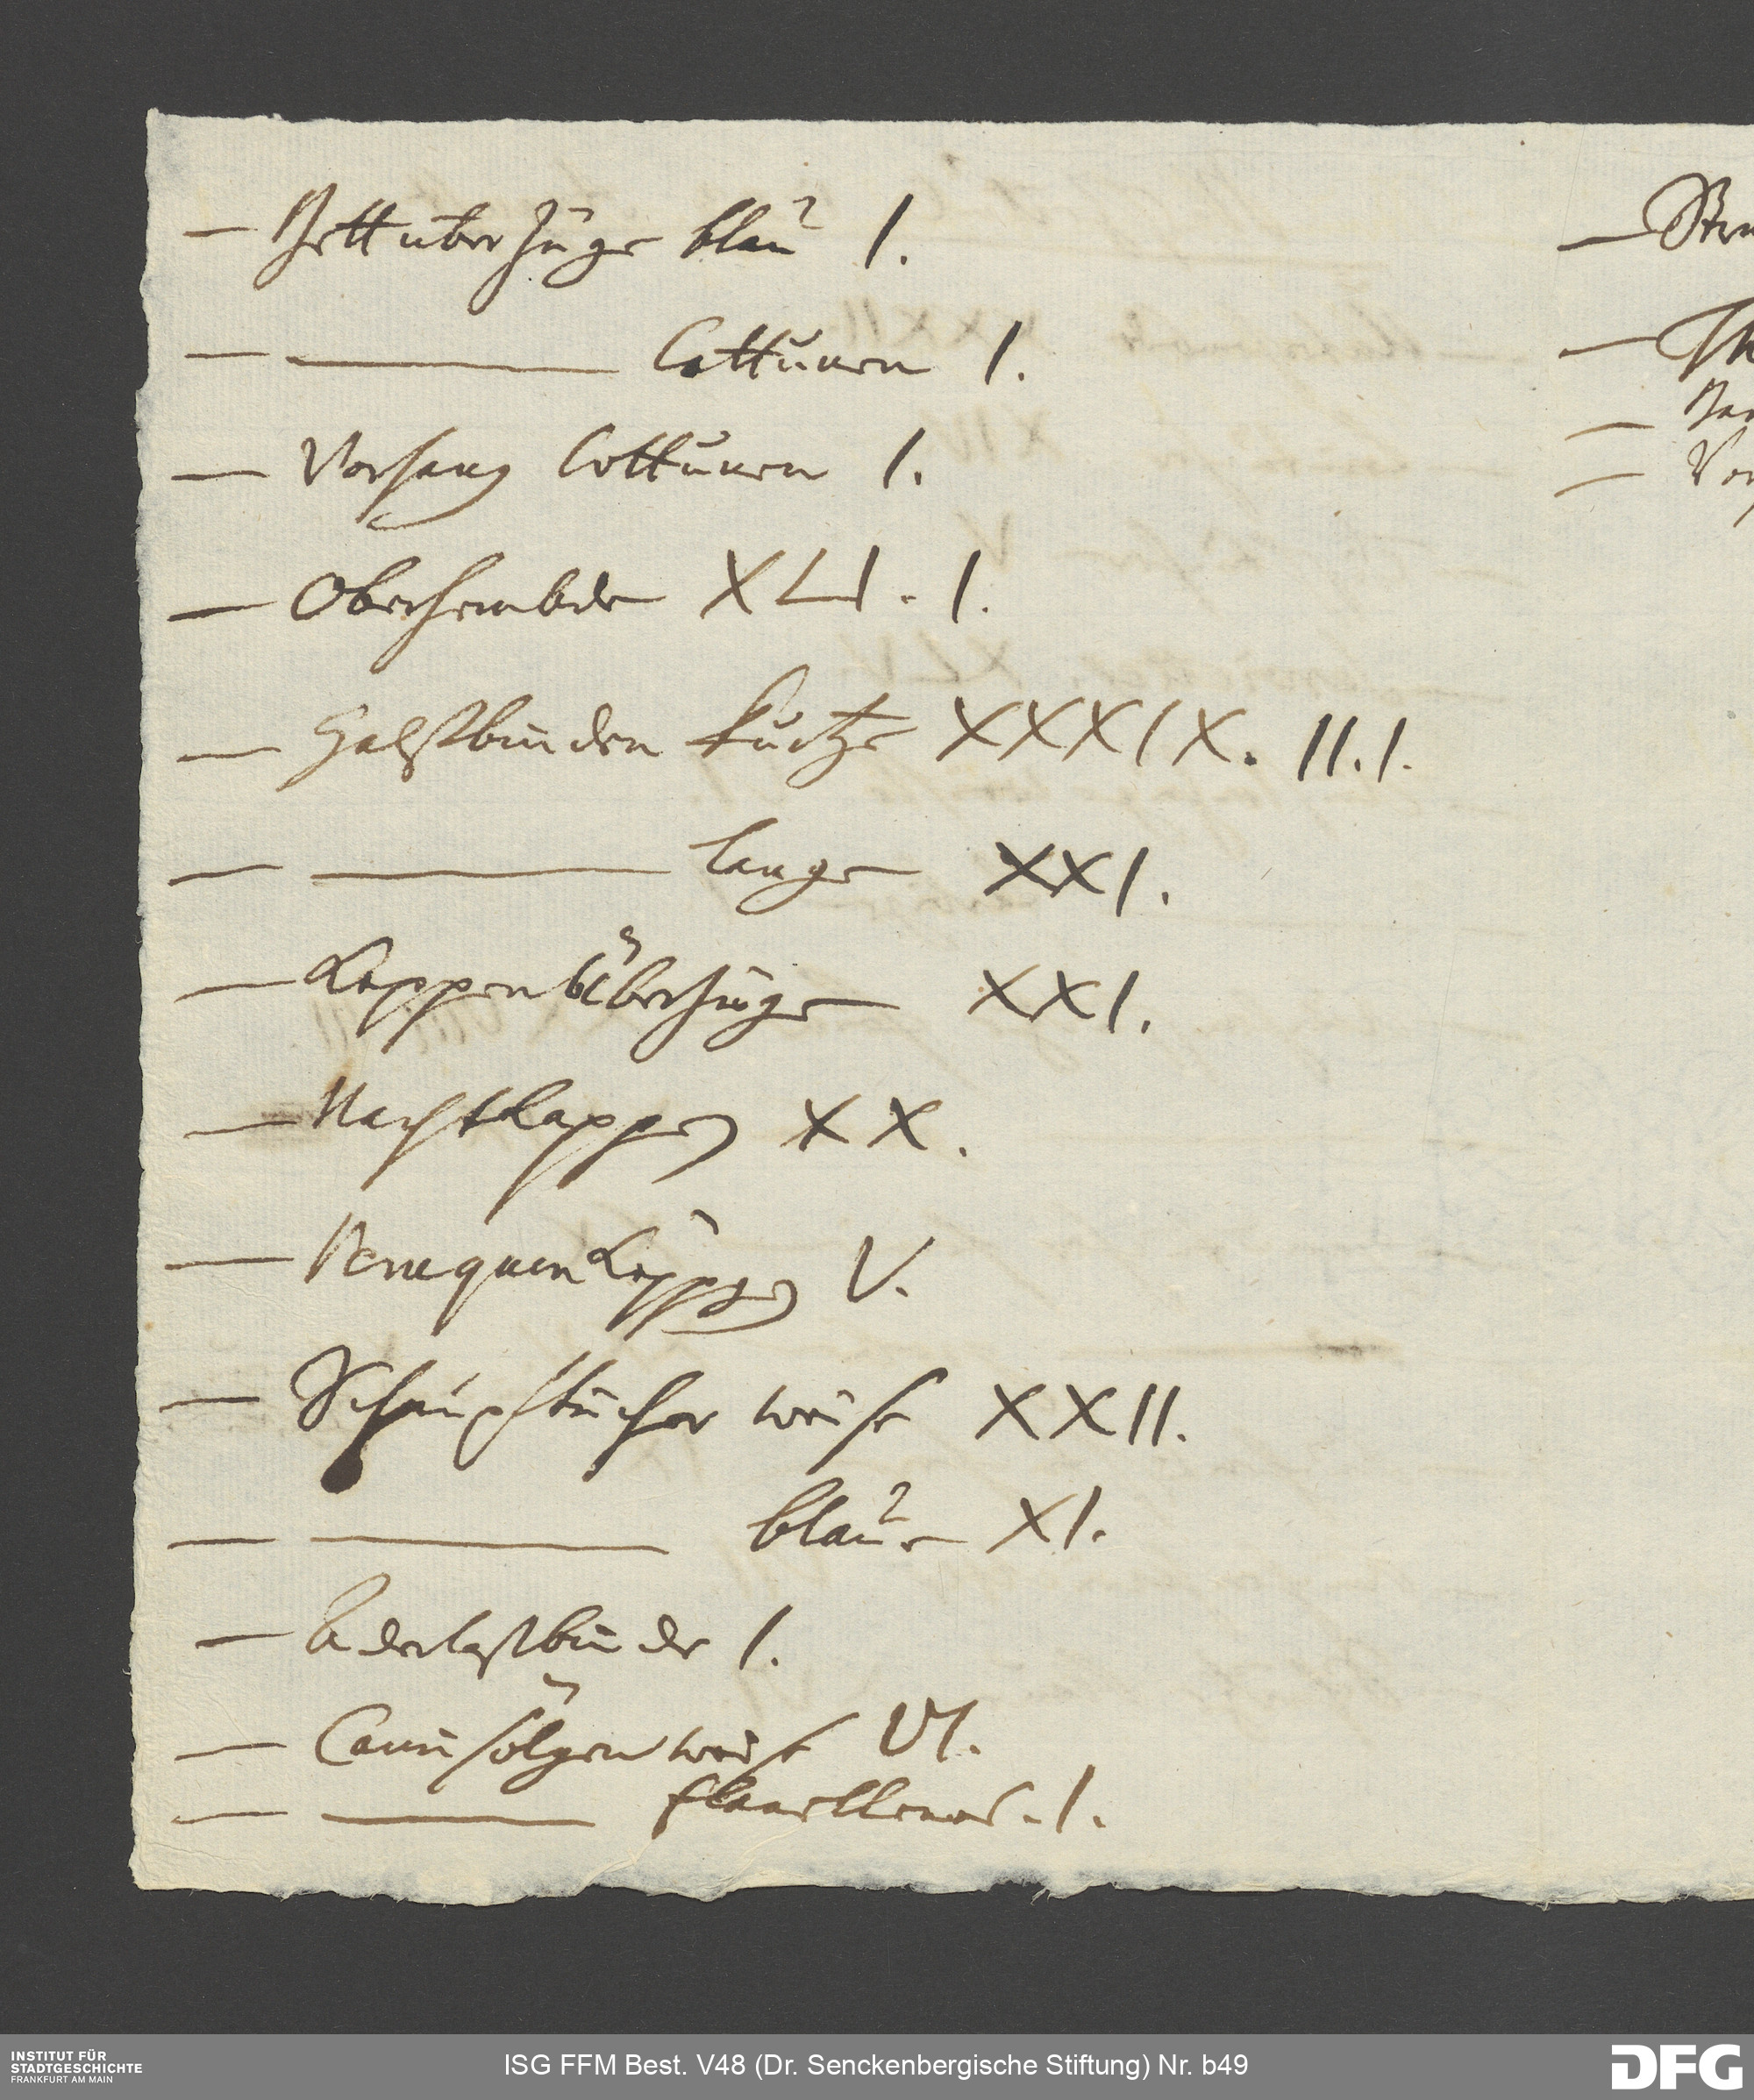 — Bettüberzüge blau I.
— ——— Cottunen I.
— Vorhang Cottunen I.
— Oberhembder XLI. I.
— Halstbinden kurtze XXXIX. II.I.
— ——— lange XXI.
— Kappenüberzüge XXI.
— Nachtkappen XX.
— Peruquenkappen V.
— Schnupftücher weise XXII.
— ——— blaue XI.
— Aderlastbinde I.
— Camisölgen weise VI.
— ——— flanellenes. I.
— 
— Th
— 
— Vor
INSTITUT FÜR
STADTGESCHICHTE
FRANKFURT AM MAIN
ISG FFM Best. V48 (Dr. Senckenbergische Stiftung) Nr. b49
DFG